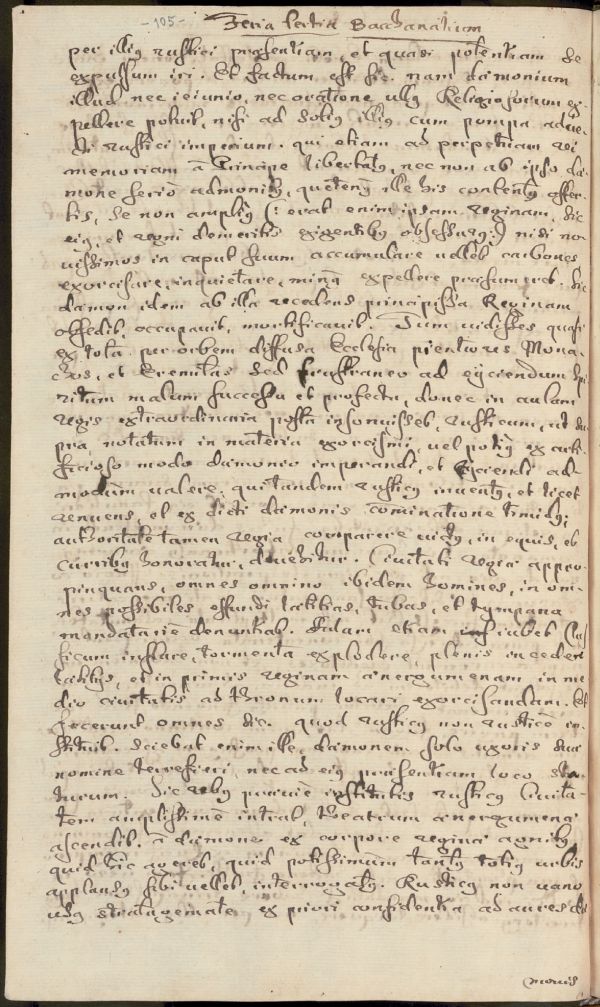 -105- Feria tertia Bacchanalium
per illius rustici præsentiam, et quasi potentiam se
expulsum iri. Et factum est sic. nam dæmonium
illud nec ieiunio, nec oratione ullius Religiosorum ex-
pellere potuit, nisi ad solius illius cum pompa adve-
cti rustici imperium. qui etiam ad perpetuam rei
memoriam à Principe libertatus, nec non ab ipso dæ-
mone serio admonitus, quatenus ille his contentus offer-
tis, se non amplius (: erat enim ipsam Reginam, sic
eius, et regni demeritis exigentibus obsessurus :) nisi no-
vissimos in caput suum accumulare vellet carbones
exorcisare, inquietare, minus expellere præsumeret. Sic
dæmon idem ab illa recedens principissa Reginam
obsedit, occupavit, mortificavit. Tum vidisses quasi
ex tota per orbem diffusa Ecclesia pientiores Mona-
chos, et Eremitas sed frustraneo ad ejiciendum spi-
ritum malum successu et profectu, donec in aulam
regis extraordinaria posta insonuisset, rusticum, ut su-
pra notatum in materia exorcismi, vel potius ex arti-
ficioso modo dæmonio imperandi, et ejiciendi ad-
modum valere. qui tandem rusticus inventus, et licet
renuens, et ex dicti dæmonis cominatione timidus,
authoritate tamen regia comparere victus, in equis, et
curribus honoratur, devehitur. Civitati regiæ appro-
pinquans, omnes omnino ibidem homines, in om-
nes possibiles effundi lætitias, tubas, et tympana
mandatarie denuntiat. Palam etiam iubet
inflare, tormenta explodere, plenis incedere
lætitijs, et in primis reginam energumenam in me
dio civitatis ad thronum locari exorcisandam. Et
fecerunt omnes sic. quod rusticus non rustice in-
stituit. sciebat enim ille, dæmonem solo uxoris suæ
nomine terrefieri, nec ad eius præsentiam loco sta-
turum. Sic rebus prævie institutis rusticus Civita-
tem amplissimam intrat, theatrum energumenæ
ascendit. à dæmone ex corpore reginæ agnitus
quid sic ageret, quid potissimum tantus totius urbis
applausus sibi vellet, interrogatus. Rusticus non vano
usus stratagemate ex priori confidentia ad aures dæ
monis